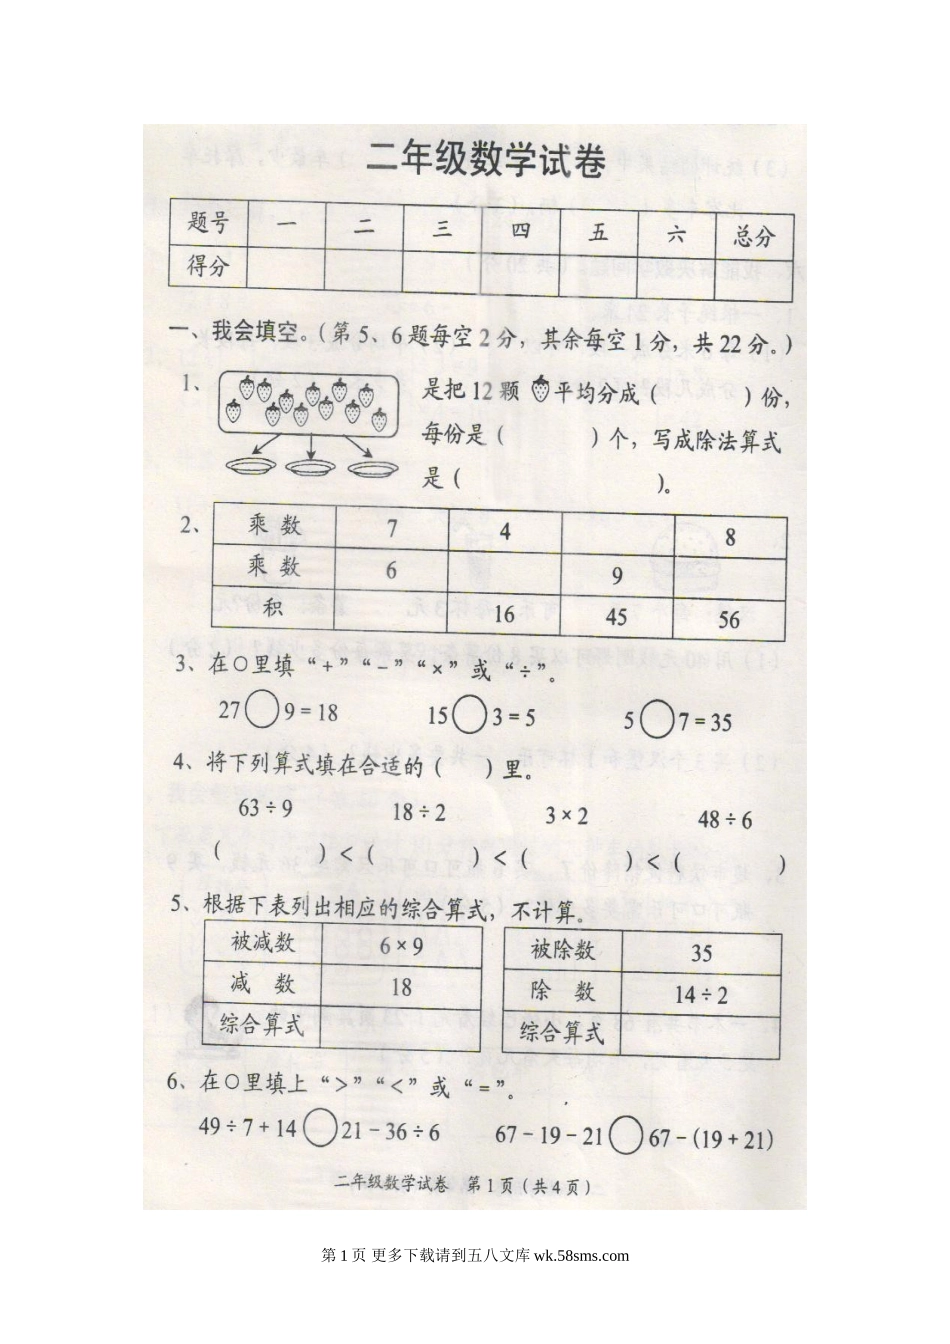 二年级数学试卷
题号 一 二 三 四 五 六 总分
得分
一、我会填空。(第5、6题每空2分，其余每空1分，共22分。)
1、 是把12颗 平均分成( )份，
每份是( )个，写成除法算式
是( )。
2、 乘数 7 4 8
乘数 6 9
积 16 45 56
3、在○里填“+”“-”“×”或“÷”。
27○9=18 15○3=5 5○7=35
4、将下列算式填在合适的( )里。
63÷9 18÷2 3×2 48÷6
( )<( )<( )<( )
5、根据下表列出相应的综合算式，不计算。
被减数 6×9 被除数 35
减数 18 除数 14÷2
综合算式 综合算式
6、在○里填上“>”“<”或“=”。
49÷7+14○21-36÷6 67-19-21○67-(19+21)
二年级数学试卷 第1页(共4页)
第 1 页 更多下载请到五八文库 wk.58sms.com